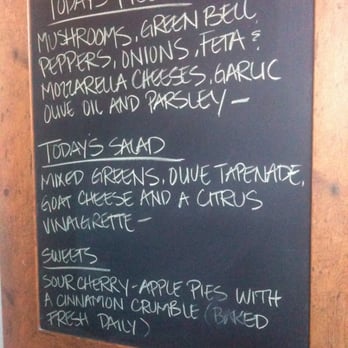 TODAY'S
MUSHROOMS, GREEN BELL
PEPPERS, ONIONS, FETA &
MOZZARELLA CHEESES, GARLIC
OLIVE OIL AND PARSLEY —
TODAY'S SALAD
MIXED GREENS, OLIVE TAPENADE,
GOAT CHEESE AND A CITRUS
VINAIGRETTE —
SWEETS
SOUR CHERRY-APPLE PIES WITH
A CINNAMON CRUMBLE (BAKED
FRESH DAILY)